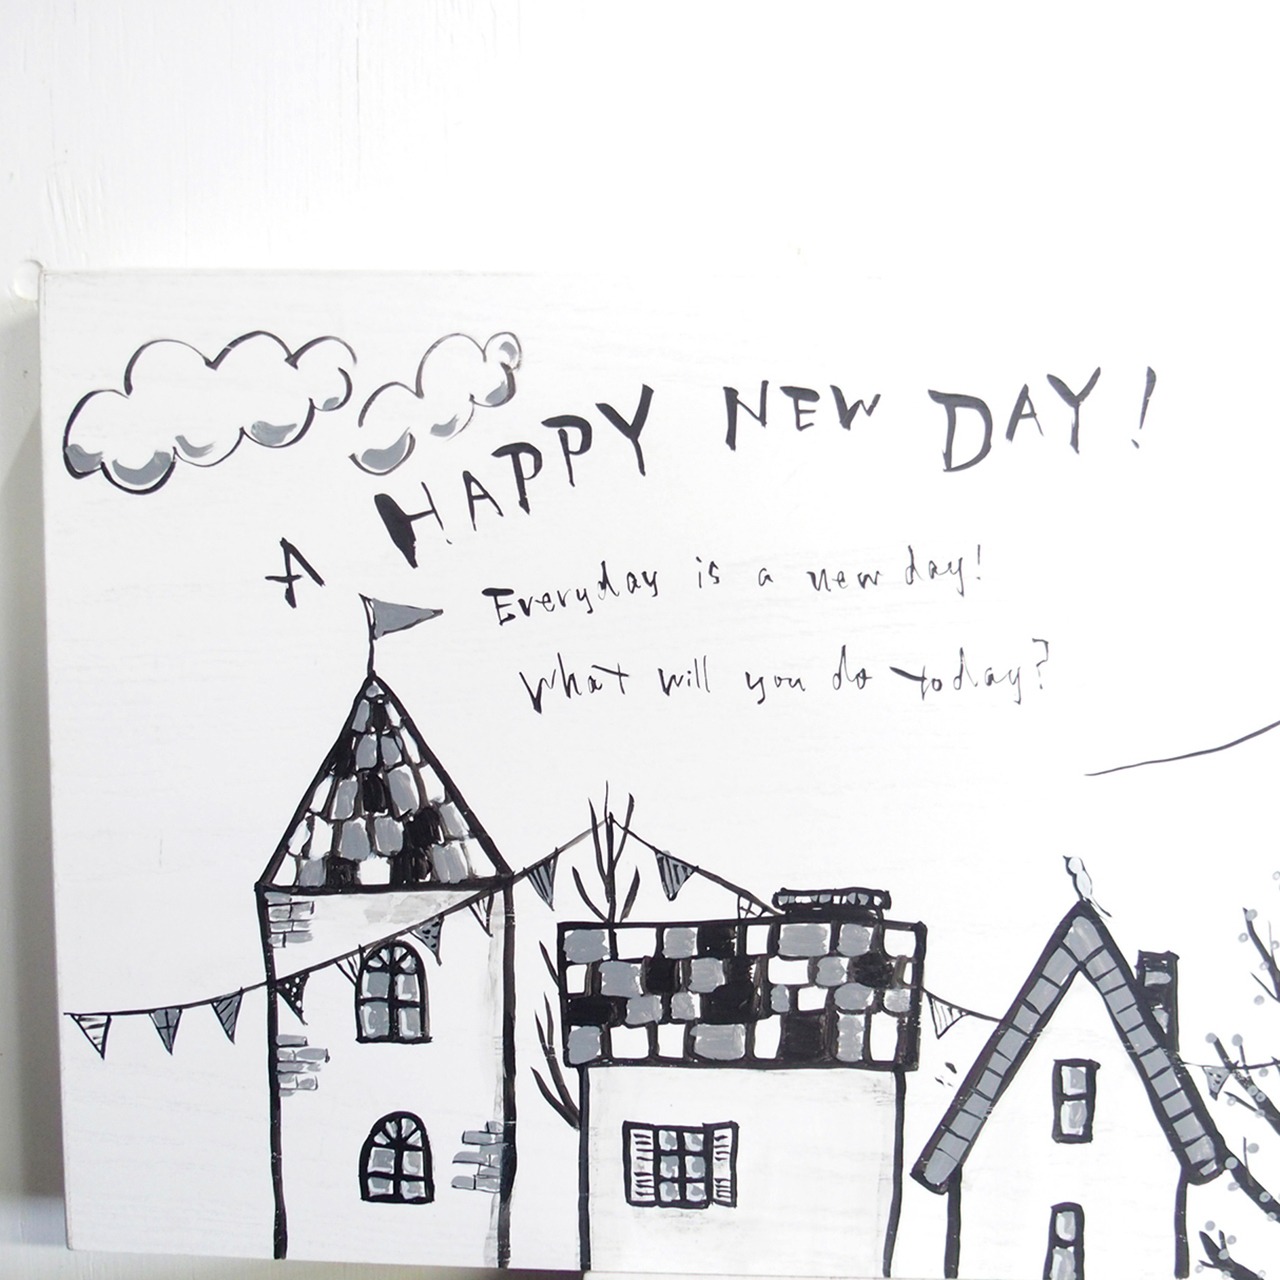 A HAPPY NEW DAY!
Everyday is a new day!
What will you do today?